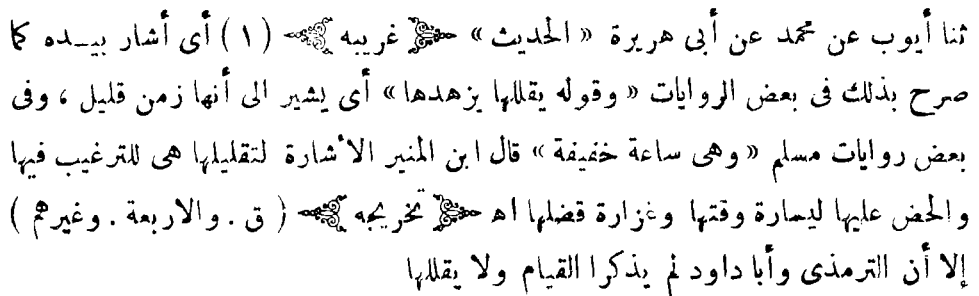 ثنا أيوب عن محمد عن أبى هريرة « الحديث » غريبه (١) أى أشار بيــده كما
صرح بذلك فى بعض الروايات « وقوله يقللها يزهدها » أى يشير الى أنها زمن قليل ، وفى
بعض روايات مسلم « وهى ساعة خفيفة » قال ابن المنير الأشارة لتقليلها هى للترغيب فيها
والحض عليها ليسارة وقتها وغزارة فضلها اهـ تخريجه ( ق . والاربعة . وغيرهم )
إلا أن الترمذى وأبا داود لم يذكرا القيام ولا يقللها